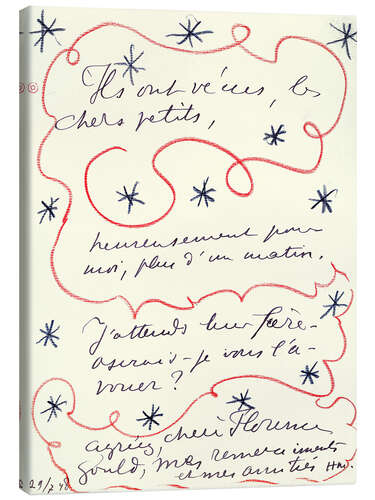 Ils ont vécus, les
chers petits,
heureusement pour
moi, plus d'un matin.
J'attends leur frère -
oserais-je vous l'a-
vouer ?
agréez, chère Florence
Gould, mes remerciements
et mes amitiés HM.
29/7 48
HM